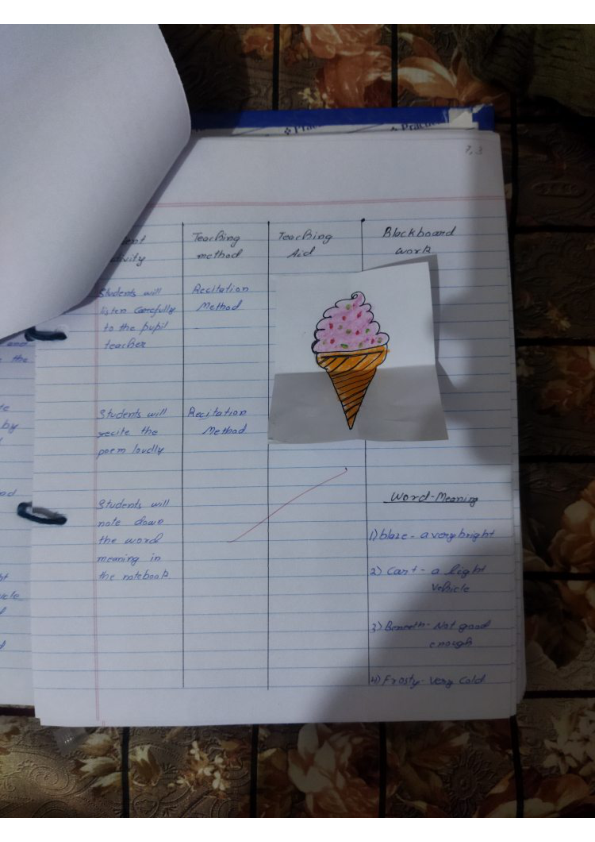 7.3
Teaching
method
Teaching
Aid
Blackboard
work
Students will
listen carefully
to the pupil
teacher
Recitation
Method
Students will
recite the
poem loudly
Recitation
Method
Students will
note down
the word
meaning in
the notebook
Word-Meaning
1) blaze - a very bright
2) Cart - a light
Vehicle
3) Beneath - Not good
enough
4) Frosty - Very Cold